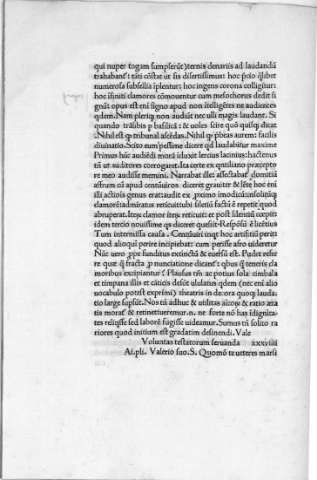 qui nuper togam sumpserūt) ternis denariis ad laudandū
trahabanť: tāti cōstat ut sis disertissimus: hoc p̄cio q̄libet
numerosa subsellia īplentur: hoc ingens corona colligiťur:
hoc ifiniti clamores cōmouentur cum mesochorus dedit si
gnū: opus est eni signo apud non ītelligētes ne audientes
qdem. Nam pleriq̄ non audiūt nec ulli magis laudant. Si
quando trāsibis p basilicā: & uoles scire quō quisq̄ dicat
: Nihil est q̄ tribunal ascēdas. Nihil q̄ p̄beas aurem: facilis
diuinatio. Scito eum pessime dicere qd laudabitur maxime
Primus hūc audiēdi morē iduxit lercius lacinius: hactenus
tn̄ ut auditores corrogaret. Ita certe ex qntiliano præcepto
re meo audisse memini. Narrabat ille: assectabar domitiū
afrum cū apud centūuiros diceret grauiter & lēte hoc eni
illi actiōis genus erat: audit ex p̄ximo īmodicū īsolitūq̄
clamorē: admiratus reticuit: ubi silentiū factū ē repetit quod
abruperat. Iterū clamor iterū reticuit: et post silentiū coepit:
idem tercio nouissime qs diceret quesiit. Respōsū ē licetius
Tum intermissa causa. Centūuiri inqt hoc artificiū periit
quod alioqui perire incipiebat: cum perisse afro uideretur
Nūc uero ppe funditus extinctū & euersū est. Pudet refer
re quę q̄ fracta p nunciatione dicanť: qbus q̄ teneris cla
moribus excipiantur. Plausus tm̄ ac potius sola cimbala
et timpana illis et cāticis desūt: ululatus qdem (nec eni alio
uocabulo potest exprimi) theatris in decora quoq̄ lauda:
tio large supsūt. Nos tn̄ adhuc & utilitas aīcoȝ & ratio æta
tis moratᷣ & retinet: ueremur .n. ne forte nō has īdignita
tes reliq̄sse sed laborē fugisse uideamur. Sumus tn̄ solito ra
riores quod initium est gradatim desinendi. Vale
Voluntas testatorum seruanda xxxviii
Ai. pli. Valerio suo. S. Quomō te ueteres marsi